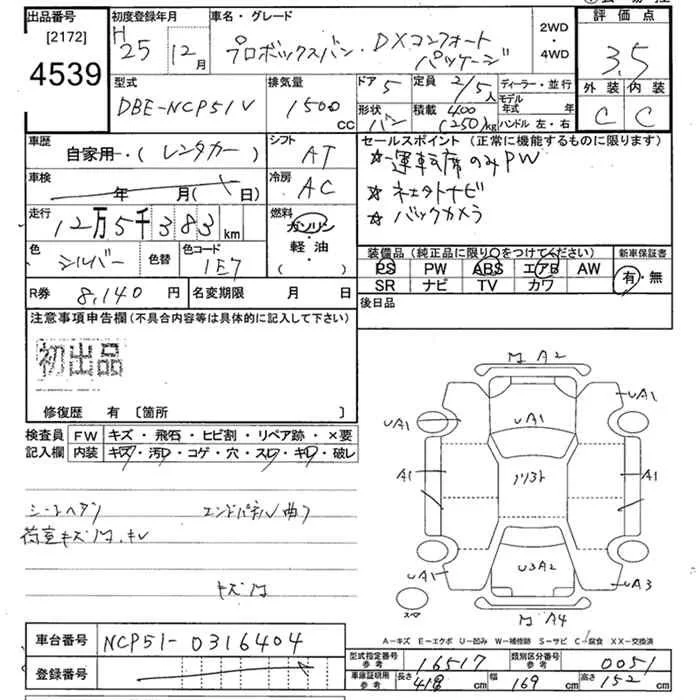 出品番号
[2172]
4539
初度登録年月
H 25 年 12 月
車名・グレード
プロボックスバン・DXコンフォート
パッケージ
2WD
・
4WD
評価点
3.5
外装 内装
C C
型式
DBE-NCP51V
排気量
1500 CC
ドア 5
定員 2/5人
形状 バン
積載 400 (250)kg
ディーラー・並行
モデル年式 年
ハンドル 左・右
車歴
自家用・(レンタカー)
シフト
AT
車検
年 月( 日)
冷房
AC
走行
12万5千383 km
燃料
ガソリン
・
軽油
( )
色
シルバー
色替
色コード
1E7
R券 8,140 円
名変期限 月 日
セールスポイント(正常に機能するものに限ります)
☆運転席のみPW
☆ネエタトナビ
☆バックカメラ
装備品(純正品に限り○をつけてください)
新車保証書
PS PW ABS エアB AW
SR ナビ TV カワ
有・無
後日品
注意事項申告欄(不具合内容等は具体的に記入して下さい)
初出品
修復歴 有 [箇所 ]
検査員記入欄
FW キズ・飛石・ヒビ割・リペア跡・×要
内装 キズ・汚レ・コゲ・穴・スレ・キレ・破レ
シートヘタリ
エンドパネル曲り
荷室キズ凹、キレ
キズ凹
凹 A2
UA1
UA1
UA1
A1
A1
ソリスト
U3A2
UA1
UA3
凹 A4
A-キズ E-エクボ U-凹み W-補修跡 S-サビ C-腐食 XX-交換済
車台番号 NCP51-0316404
登録番号
型式指定番号
参考
16517
類別区分番号
参考
0051
車庫証明用
参考
長さ 418 cm
幅 169 cm
高さ 152 cm